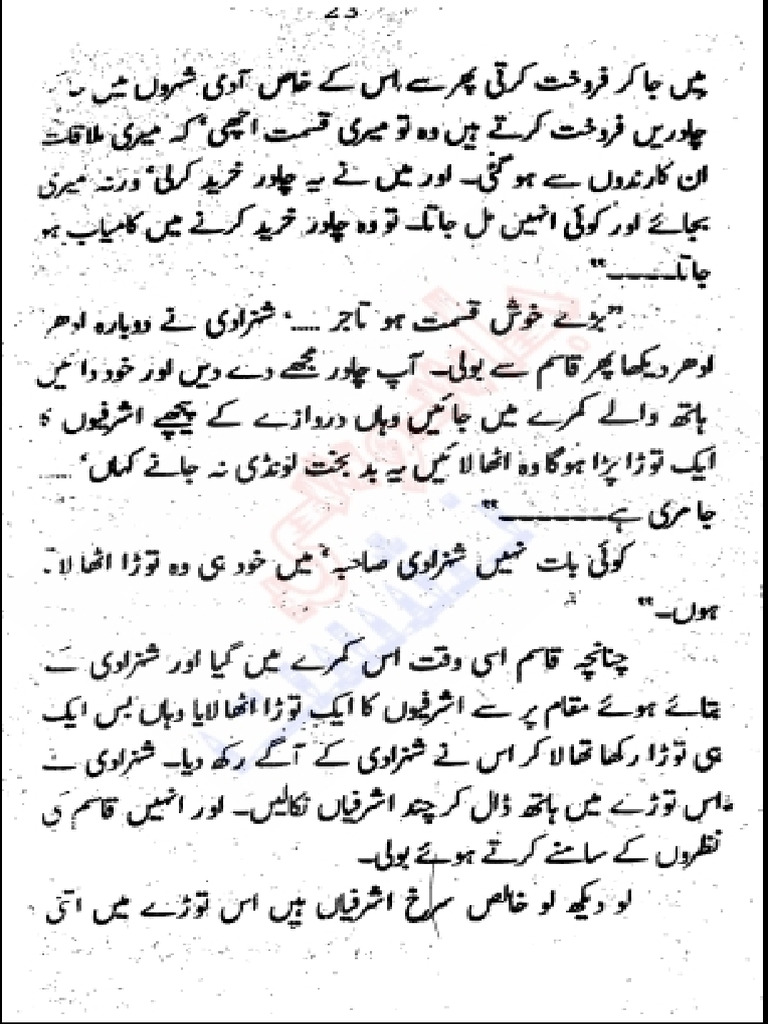 23
میں جا کر فروخت کرتی پھر سے اس کے خاص آدمی شہروں میں
چادریں فروخت کرتے ہیں وہ تو میری قسمت اچھی، کہ میری ملاقات
ان کارندوں سے ہو گئی۔ اور میں نے یہ چادر خرید کرلی، ورنہ میری
بجائے اور کوئی انہیں مل جاتا۔ تو وہ چادر خرید کرنے میں کامیاب ہو
جاتا۔۔۔۔۔"
"بڑے خوش قسمت ہو تاجر .....، شنزادی نے دوبارہ ادھر
ادھر دیکھا پھر قاسم سے بولی۔ آپ چادر مجھے دے دیں اور خود دائیں
ہاتھ والے کمرے میں جائیں وہاں دروازے کے پیچھے اشرفیوں کا
ایک توڑا پڑا ہوگا وہ اٹھا لائیں یہ بد بخت لونڈی نہ جانے کہاں، .....
جا مری ہے۔۔۔۔۔۔۔"
کوئی بات نہیں شنزادی صاحبہ، میں خود ہی وہ توڑا اٹھا لا
ہوں۔"
چنانچہ قاسم اسی وقت اس کمرے میں گیا اور شنزادی کے
بتائے ہوئے مقام پر سے اشرفیوں کا ایک توڑا اٹھا لایا وہاں بس ایک
ہی توڑا رکھا تھا لا کر اس نے شنزادی کے آگے رکھ دیا۔ شنزادی نے
اس توڑے میں ہاتھ ڈال کر چند اشرفیاں نکالیں۔ اور انہیں قاسم کی
نظروں کے سامنے کرتے ہوئے بولی۔
لو دیکھ لو خالص سرخ اشرفیاں ہیں اس توڑے میں اتنی